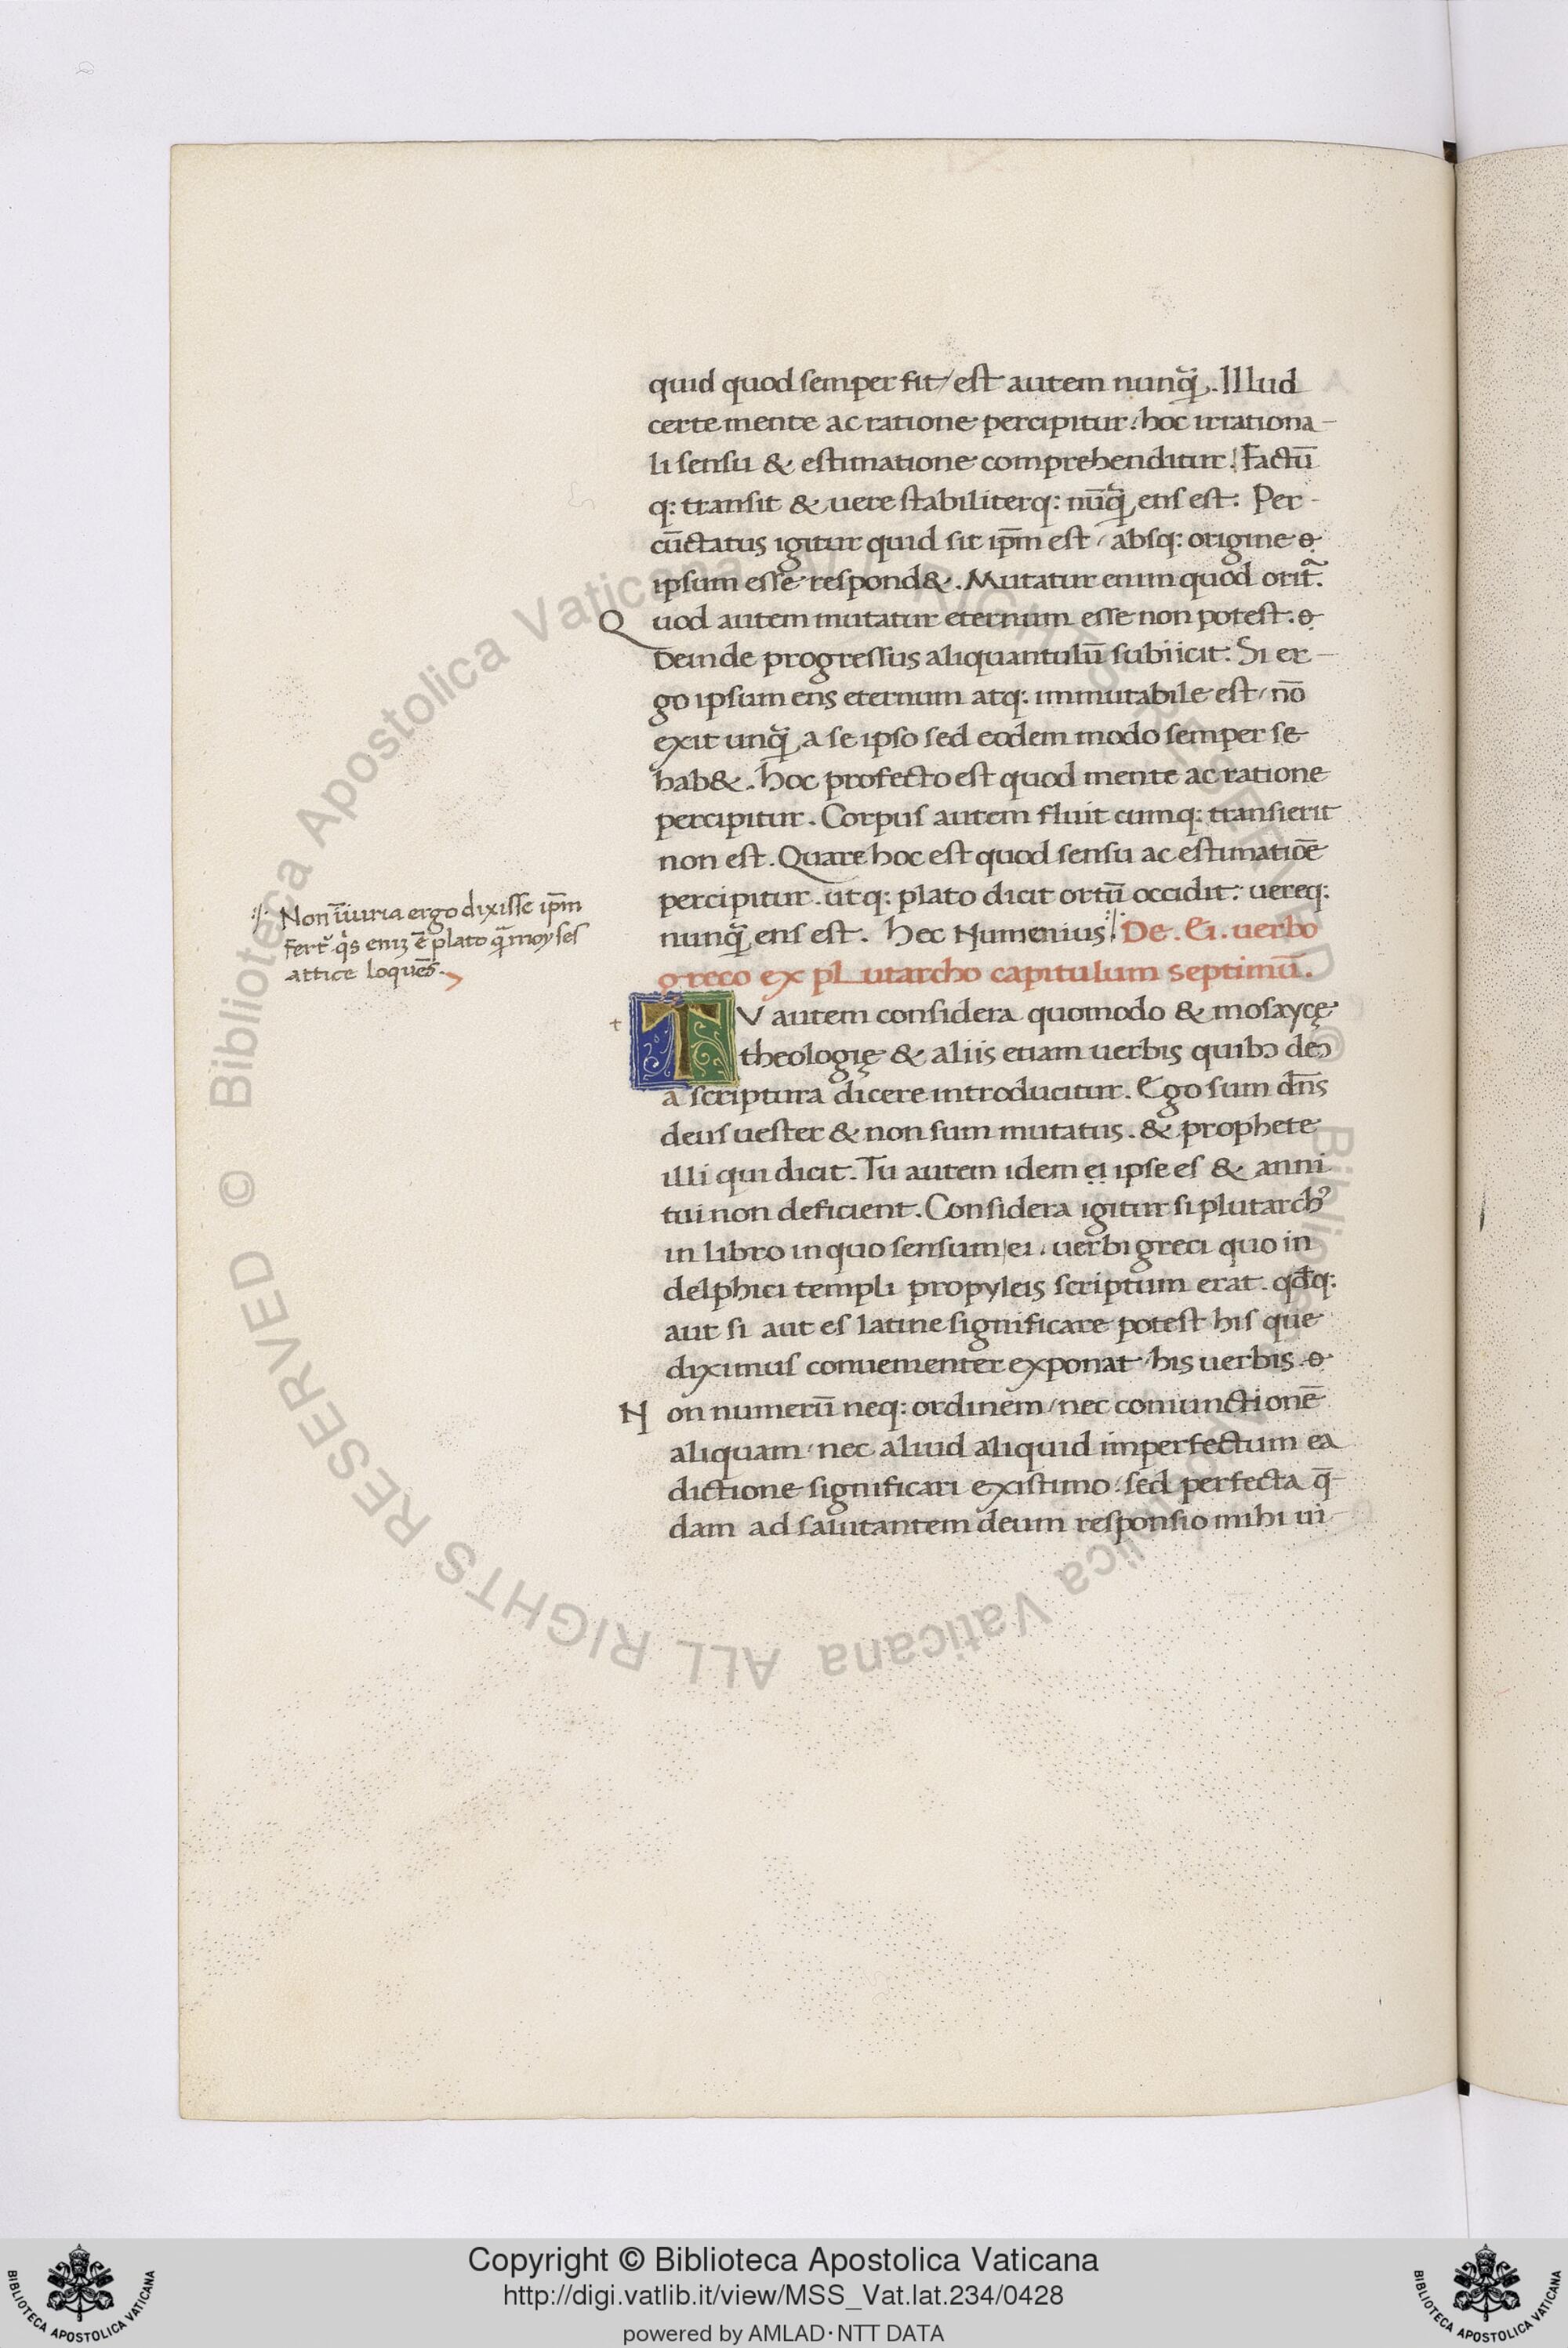 quid quod semper fit/ est autem nunq̃. Illud
certe mente ac ratione percipitur: hoc irrationa-
li sensu & estimatione comprehenditur! Factū
q: transit & uere stabiliterq: nūq̃ ens est. Per-
cūctatus igitur quid sit ip̄m est / absq: origine
ipsum esse respond&. Mutatur enim quod orit᷉.
Quod autem mutatur eternum esse non potest.
Deinde progressus aliquantulū subiicit. Si er-
go ipsum ens eternum atq: immutabile est / nō
exit unq̃ a se ipso sed eodem modo semper se
hab&. hoc profecto est quod mente ac ratione
percipitur. Corpus autem fluit cumq: transierit
non est. Quare hoc est quod sensu ac estimatiōe
percipitur. utq: plato dicit ortū occidit: uereq:
nunq̃ ens est. hec Numenius. De. Ei. uerbo
greco ex pLutarcho capitulum septimū.
Non īiuria ergo dixisse ip̄m
fert᷉ qͥs enīȝ ē plato q̃ moyses
attice loquēs.
TV autem considera quomodo & mosaycę
theologię & aliis etiam uerbis quibꝰ deꝰ
a scriptura dicere introducitur. Ego sum dn̄s
deus uester & non sum mutatus. & prophete
illi qui dicit. Tu autem idem ẹị ipse es & anni
tui non deficient. Considera igitur si plutarchꝰ
in libro in quo sensum ei. uerbi greci quo in
delphici templi propyleis scriptum erat. qd̄q:
aut si aut es latine significare potest his que
diximus conuenienter exponat / his uerbis.
Non numerū neq: ordinem / nec coniunctionē
aliquam / nec aliud aliquid imperfectum ea
dictione significari existimo: sed perfecta q̄-
dam ad salutantem deum responsio mihi ui
Copyright © Biblioteca Apostolica Vaticana
http://digi.vatlib.it/view/MSS_Vat.lat.234/0428
powered by AMLAD·NTT DATA
BIBLIOTECA APOSTOLICA VATICANA
BIBLIOTECA APOSTOLICA VATICANA
© Biblioteca Apostolica Vaticana ALL RIGHTS RESERVED
© Biblioteca Apostolica Vaticana ALL RIGHTS RESERVED